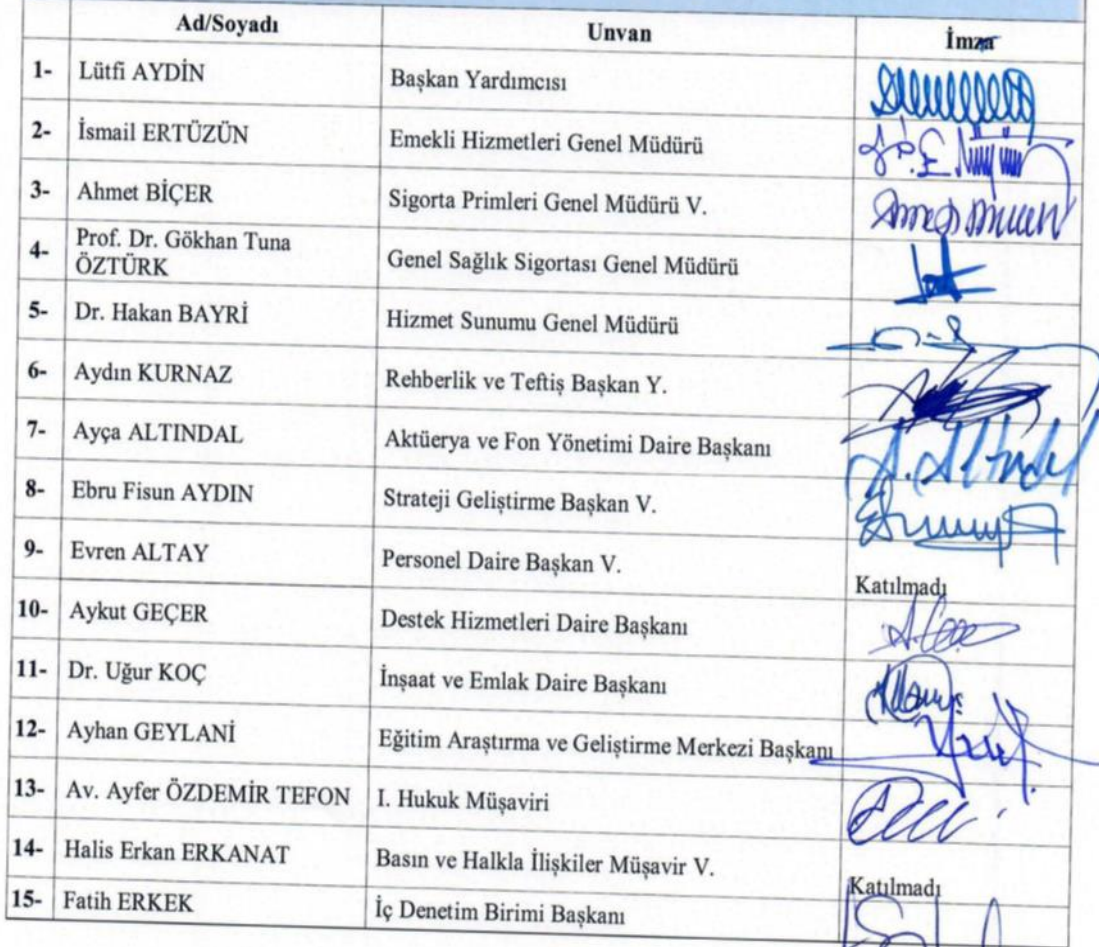 Ad/Soyadı Unvan İmza
1- Lütfi AYDİN Başkan Yardımcısı
2- İsmail ERTÜZÜN Emekli Hizmetleri Genel Müdürü
3- Ahmet BİÇER Sigorta Primleri Genel Müdürü V.
4- Prof. Dr. Gökhan Tuna
ÖZTÜRK Genel Sağlık Sigortası Genel Müdürü
5- Dr. Hakan BAYRİ Hizmet Sunumu Genel Müdürü
6- Aydın KURNAZ Rehberlik ve Teftiş Başkan Y.
7- Ayça ALTINDAL Aktüerya ve Fon Yönetimi Daire Başkanı A. Altındal
8- Ebru Fisun AYDIN Strateji Geliştirme Başkan V.
9- Evren ALTAY Personel Daire Başkan V. Katılmadı
10- Aykut GEÇER Destek Hizmetleri Daire Başkanı
11- Dr. Uğur KOÇ İnşaat ve Emlak Daire Başkanı
12- Ayhan GEYLANİ Eğitim Araştırma ve Geliştirme Merkezi Başkanı
13- Av. Ayfer ÖZDEMİR TEFON I. Hukuk Müşaviri
14- Halis Erkan ERKANAT Basın ve Halkla İlişkiler Müşavir V. Katılmadı
15- Fatih ERKEK İç Denetim Birimi Başkanı